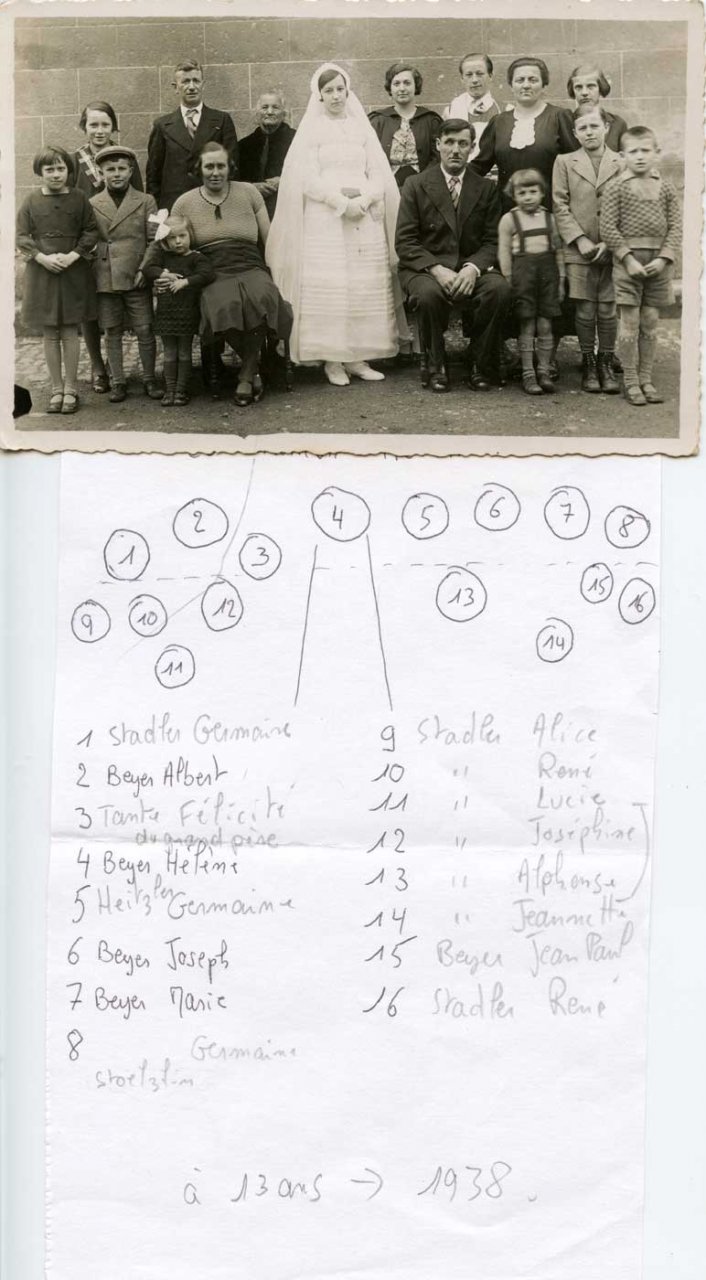 1 2 3 4 5 6 7 8
9 10 11 12 13 14 15 16
1 Stadler Germaine
2 Beyer Albert
3 Tante Félicité
du grand père
4 Beyer Hélène
5 Heitzler Germaine
6 Beyer Joseph
7 Beyer Marie
8 Germaine
Stoelzlin
9 Stadler Alice
10 " René
11 " Lucie
12 " Joséphine
13 " Alphonse
14 " Jeannette
15 Beyer Jean Paul
16 Stadler René
à 13 ans → 1938.